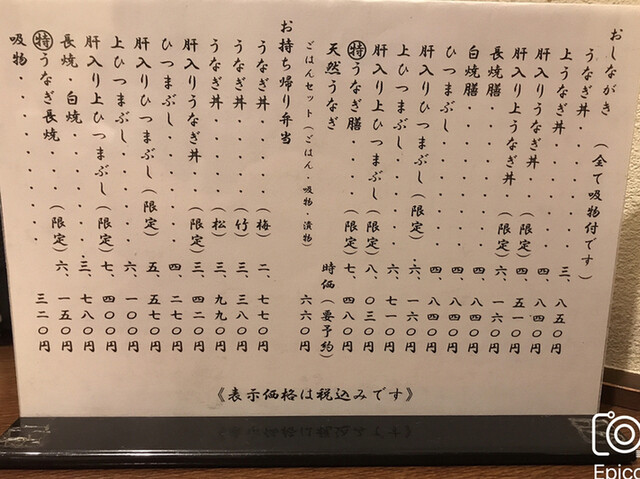 おしながき (全て吸物付です)
うなぎ丼・・・・・・・・三、八五〇円
上うなぎ丼・・・・・・・四、八四〇円
肝入りうなぎ丼・・(限定)四、五一〇円
肝入り上うなぎ丼・(限定)六、一六〇円
長焼膳・・・・・・・・・四、八四〇円
白焼膳・・・・・・・・・四、八四〇円
ひつまぶし・・・・・・・四、八四〇円
肝入りひつまぶし・(限定)六、一六〇円
上ひつまぶし・・・・・・六、七一〇円
肝入り上ひつまぶし(限定)八、〇三〇円
㊕うなぎ膳・・・・(限定)七、四八〇円
天然うなぎ 時価(要予約)
ごはんセット(ごはん・吸物・漬物) 六六〇円
お持ち帰り弁当
うなぎ丼・・・・(梅)二、七七〇円
うなぎ丼・・・・(竹)三、三八〇円
うなぎ丼・・・・(松)三、九九〇円
肝入りうなぎ丼・・(限定)三、四二〇円
ひつまぶし・・・・・・・四、二七〇円
肝入りひつまぶし・(限定)五、五七〇円
上ひつまぶし・・・・・・六、一〇〇円
肝入り上ひつまぶし(限定)七、四〇〇円
長焼・白焼・・・・・・・三、七八〇円
㊕うなぎ長焼・・・(限定)六、一五〇円
吸物・・・・・・・・・・三二〇円
《表示価格は税込みです》
Epico